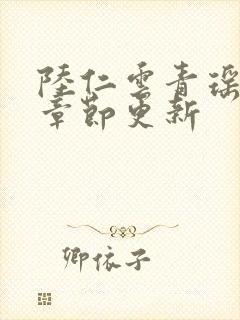 陸仁雲青瑶
章節更新
卿依子